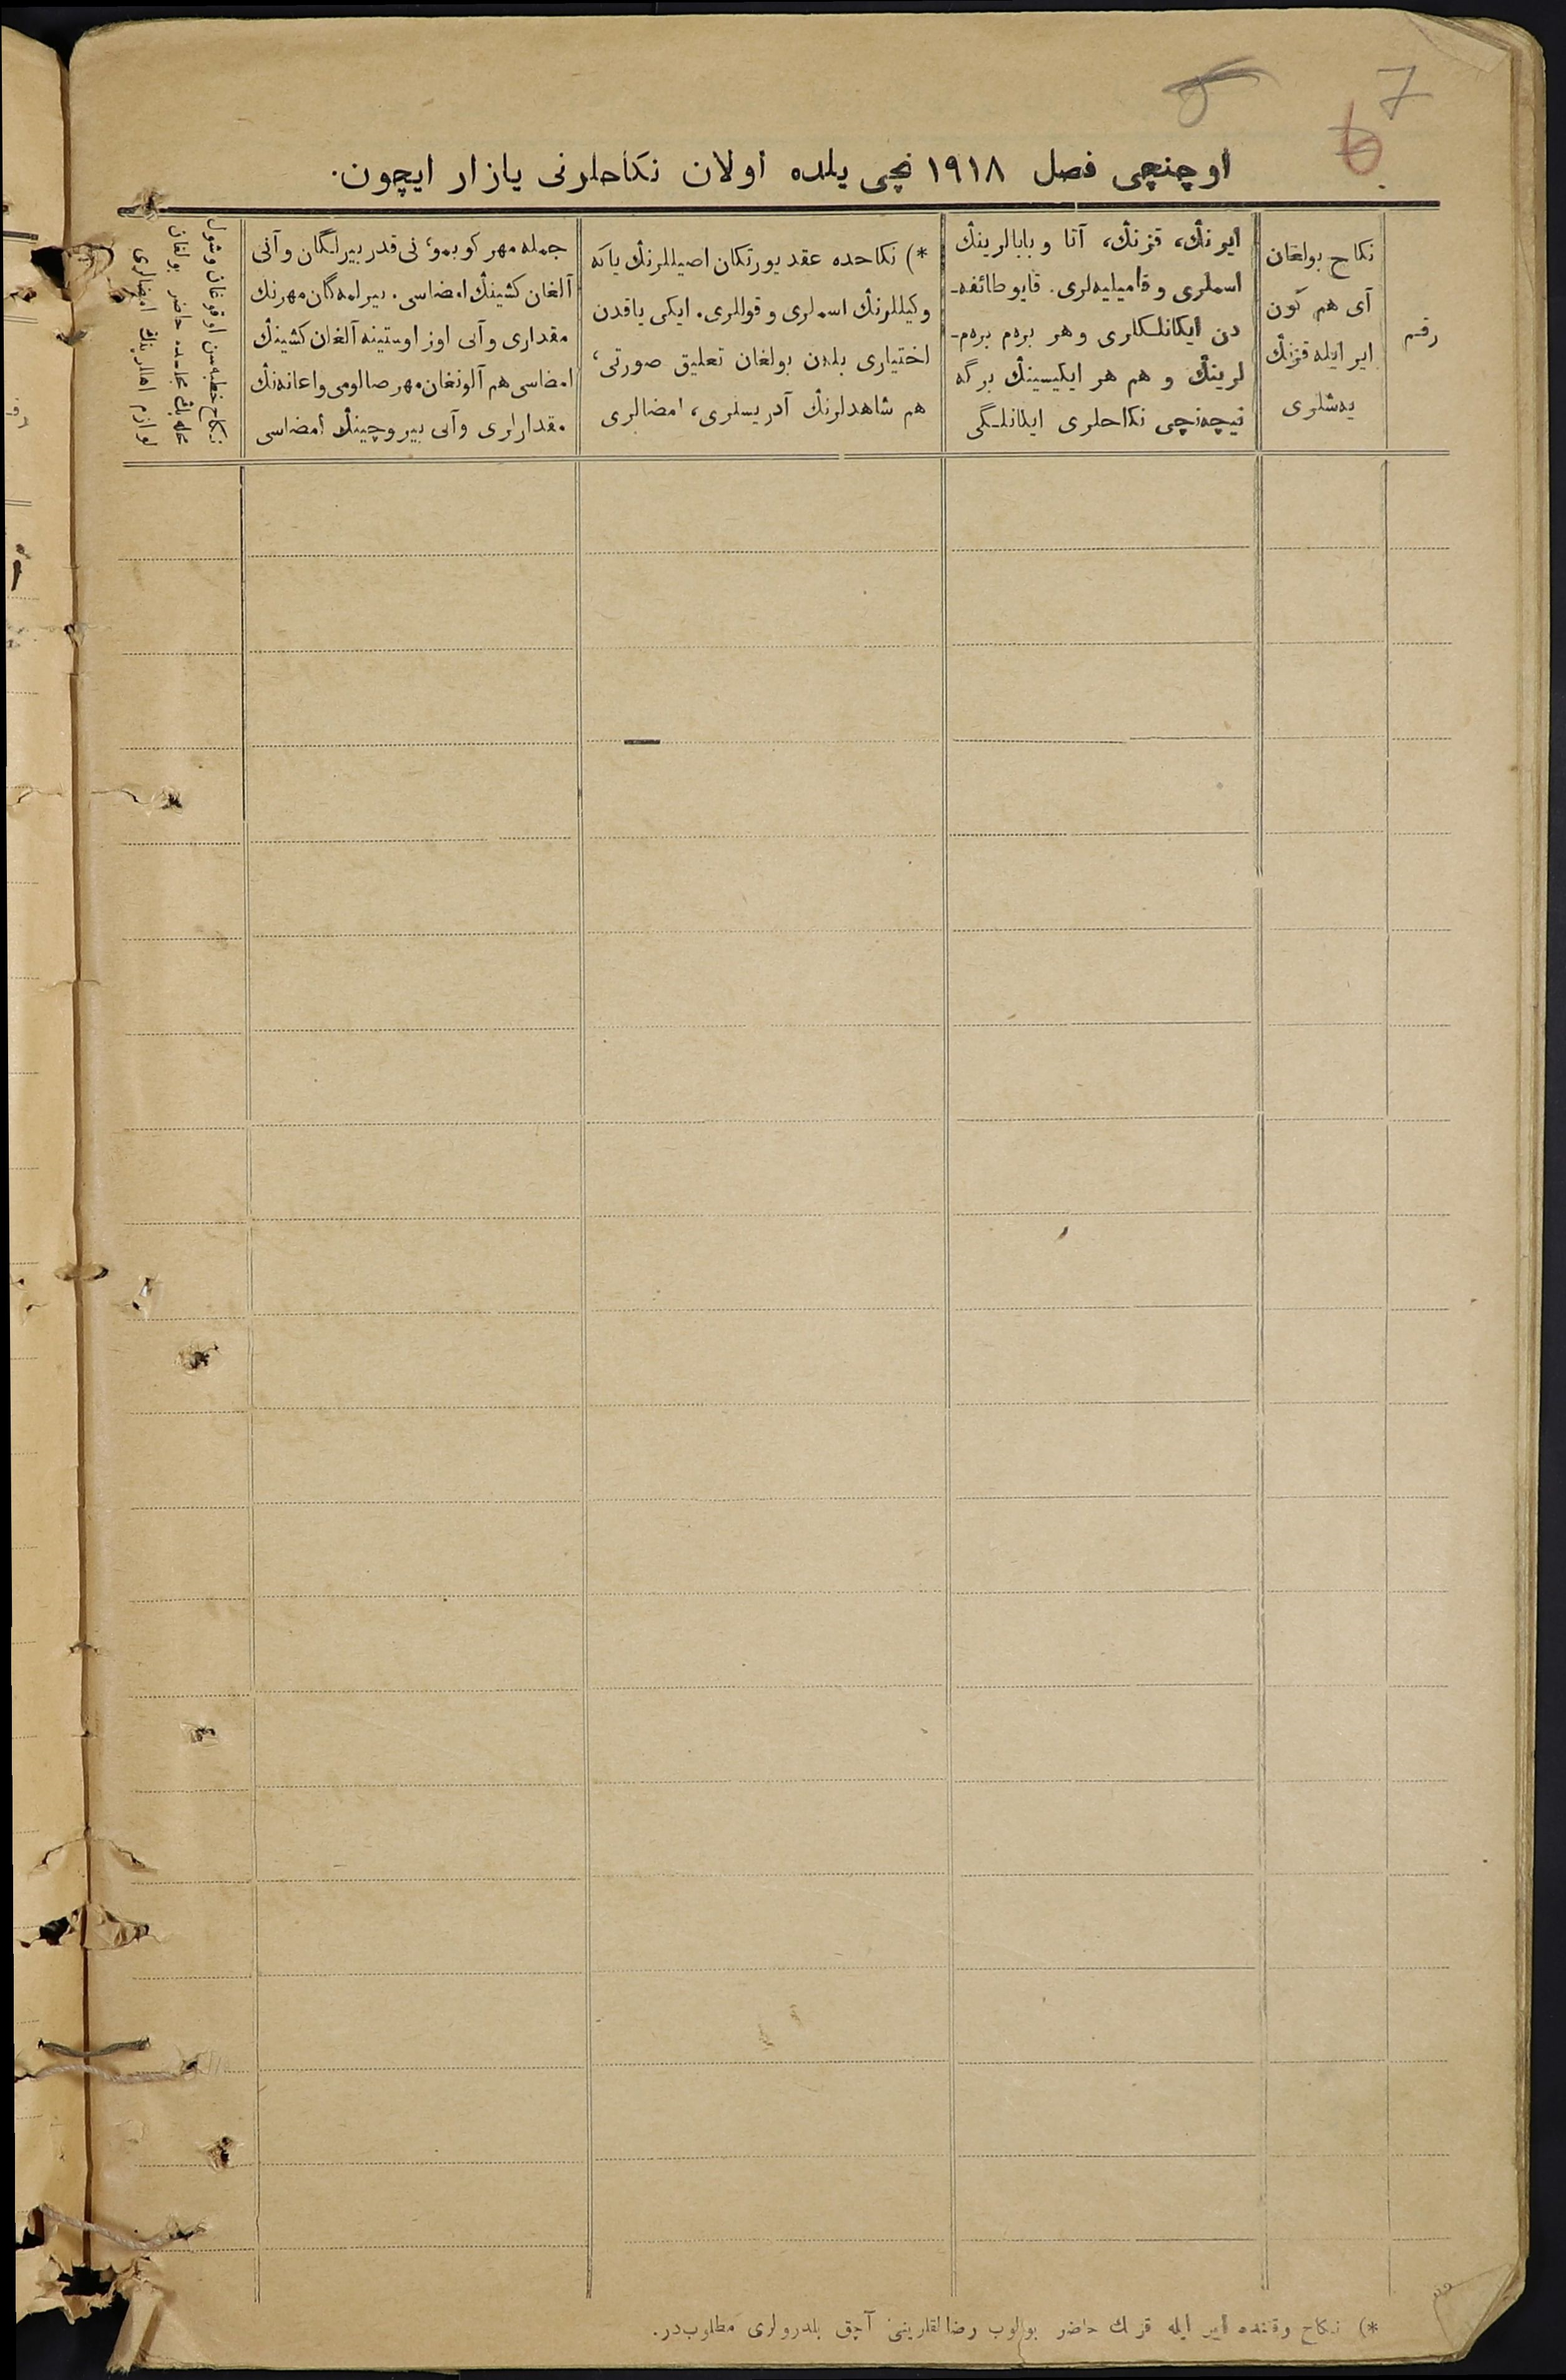 7
6
اوچنچی فصل ١٩١٨ نچی یلده اولان نكاحلرنی یازار ایچون.
رقم
نكاح بولغان
آی هم كون
ایر ایله قزنڭ
یه‌شلری
ایرنڭ، قزنڭ، آتا و بابالرینڭ
اسملری و فامیلیه‌لری. قایو طائفه-
دن ایكانلكلری وهر بره‌م بره‌م-
لرینڭ و هم هر ایكیسینڭ برگه
نیچه‌نچی نكاحلری ایكانلـگی
*) نكاحده عقد یورتكان اصیللرنڭ یاكه
وكیللرنڭ اسملری و قوللری. ایكی یاقدن
اختیاری بلەن بولغان تعلیق صورتی،
هم شاهدلرنڭ آدریسلری، امضالری
جمله مهر كوبمو، نی قدر بیرلگان و آنی
آلغان كشینڭ امضاسی. بیرلمه‌گان مهرنڭ
مقداری و آنی اوز اوستینه آلغان كشینڭ
امضاسی هم آلونغان مهر صالومی واعانه‌نڭ
مقدارلری و آنی بیروچینڭ امضاسی
نكاح خطبه‌سن اوقوغان وشول
محله‌نڭ مجلسده حاضر بولغان
لوازم اهللرینڭ امضالری
*) نكاح وقتنده ایر ایله قزنڭ حاضر بولوب رضالقلرینی آچق بلدرولری مطلوب‌در.